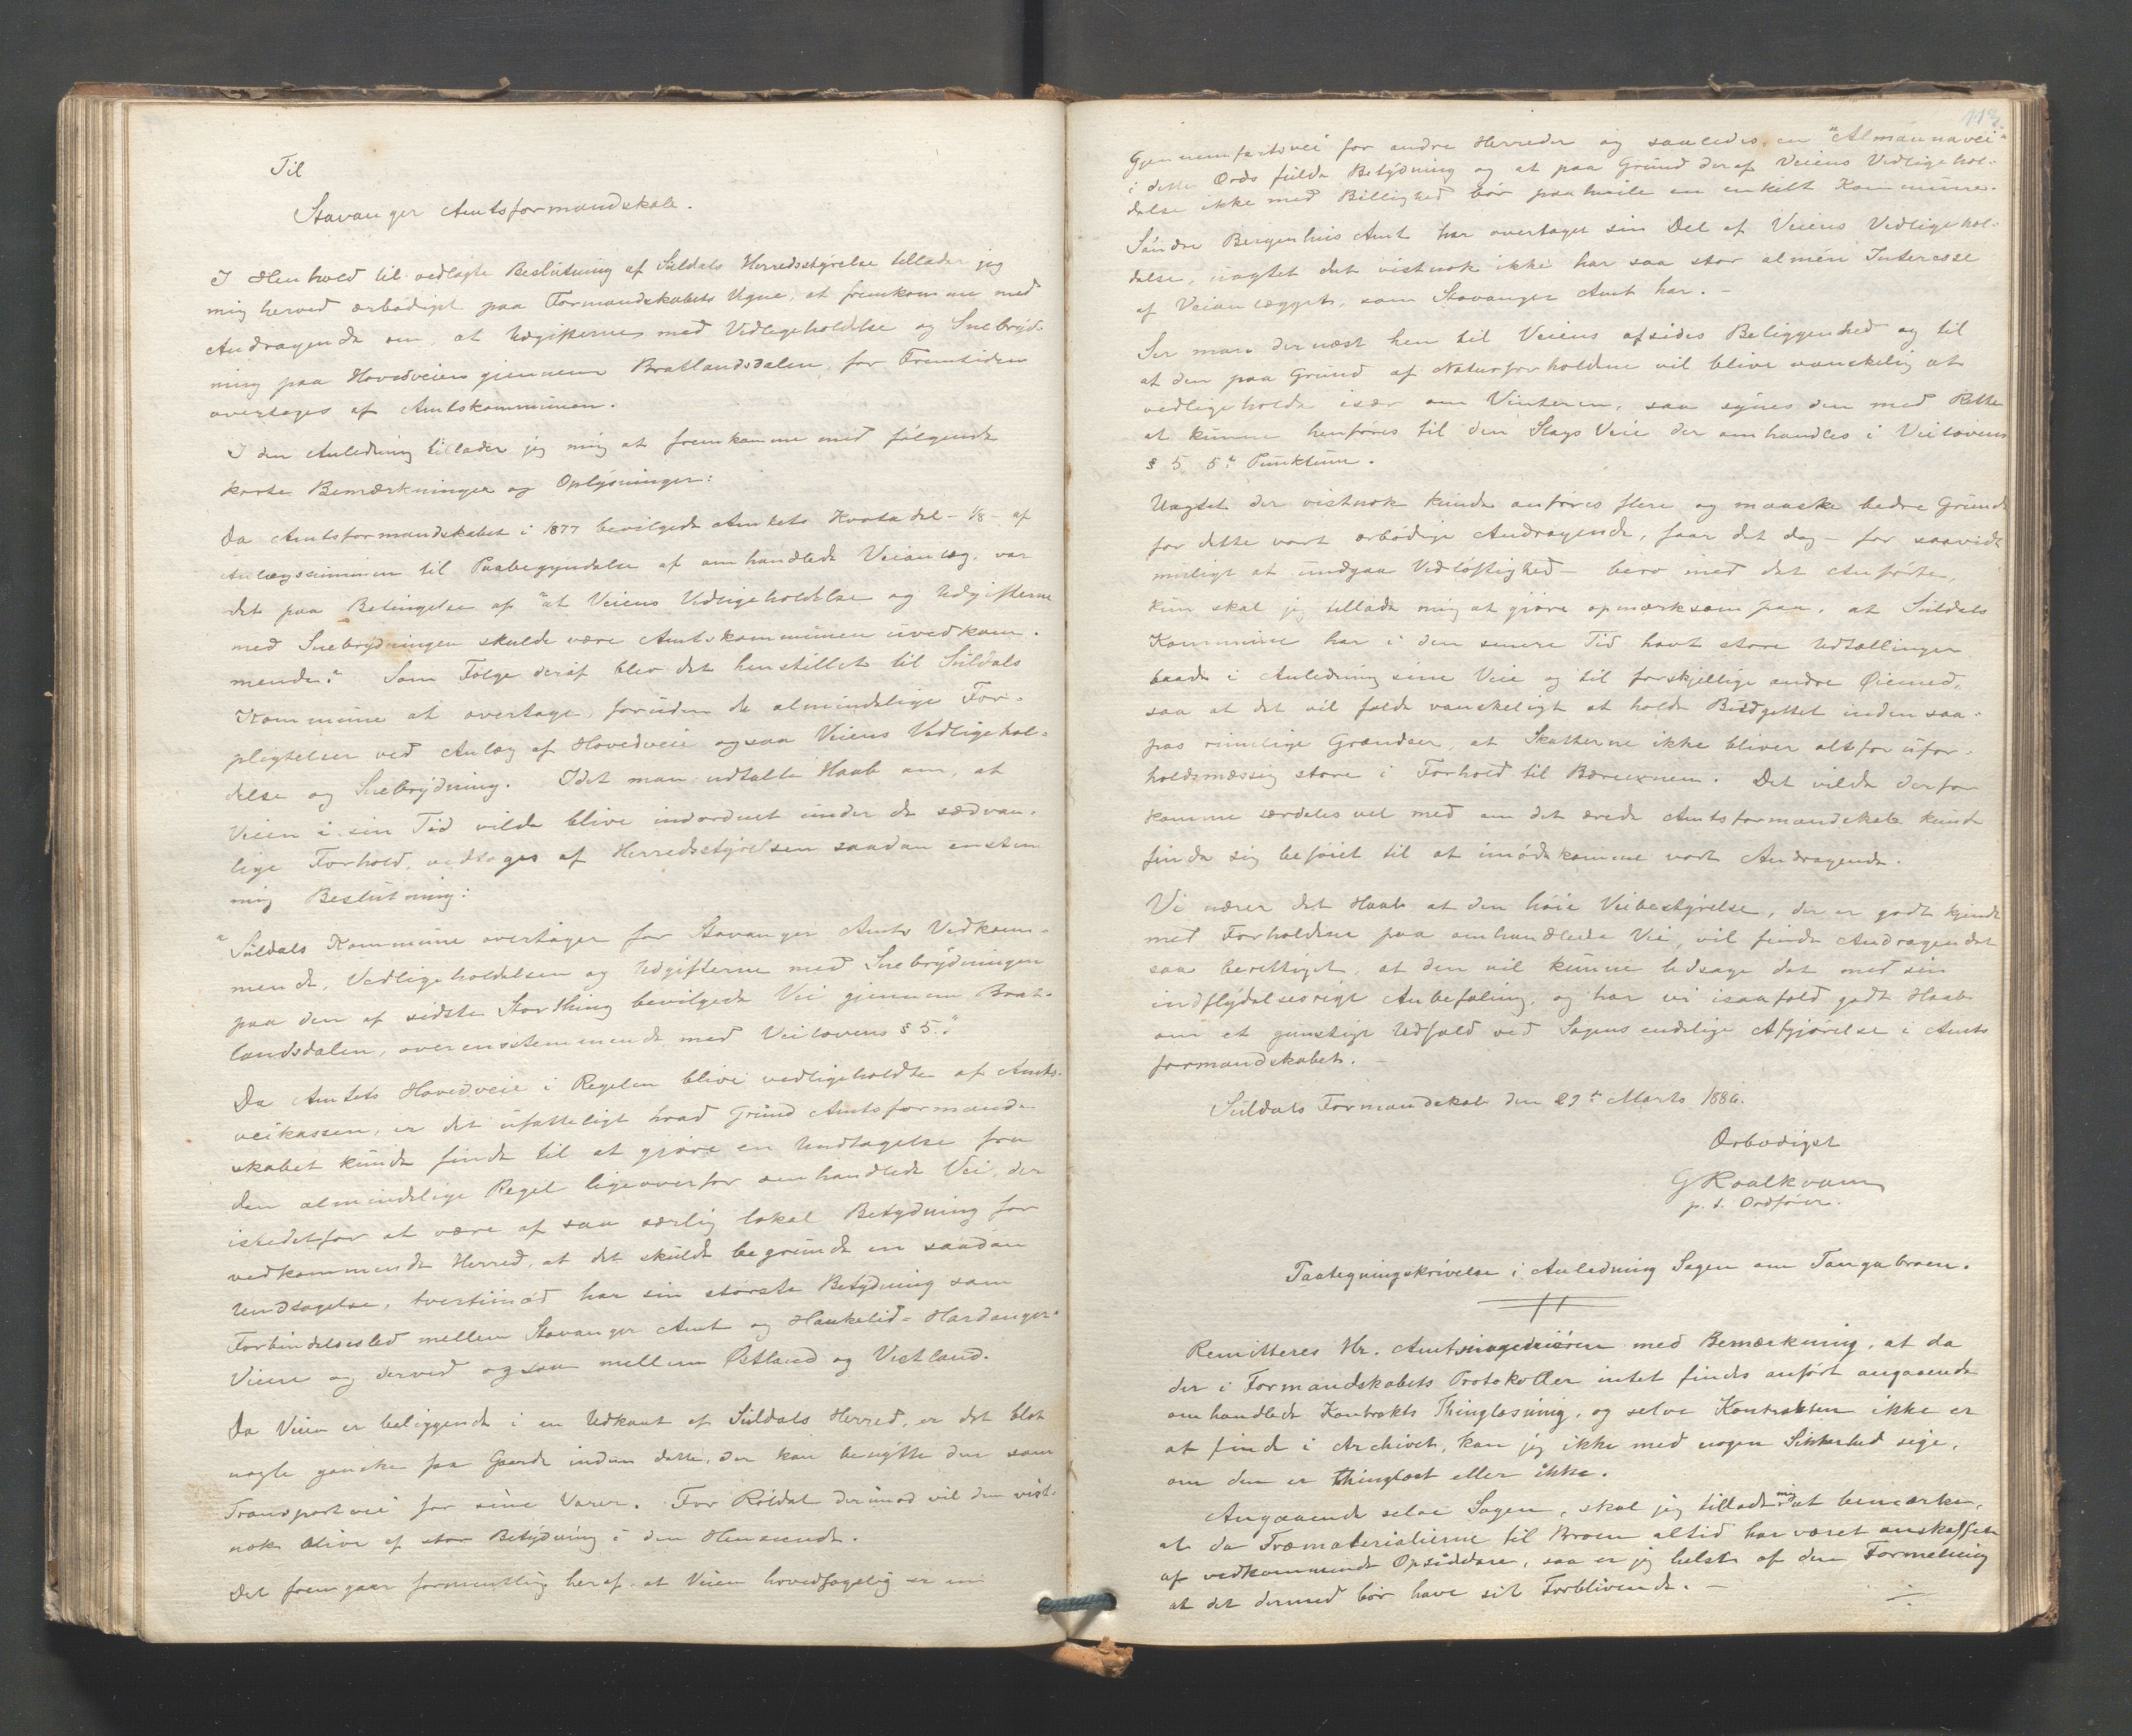 Til
Stavanger Amtsformandskab.
I Henhold til vedlagte Beslutning af Suldals Herredsstyrelse tillader jeg
mig herved ærbødigst paa Formandskabets Vegne, at fremkomme med
Andragende om, at Udgifterne med Vedligeholdelse og Snebryd-
ning paa Hovedveien gjennem Bratlandsdalen, for Fremtiden
overtages af Amtskommunen.
I den Anledning tillader jeg mig at fremkomme med følgende
korte Bemærkninger og Oplysninger:
Da Amtsformandskabet i 1877 bevilgede Amtets Kvotadel - 1/8 - af
Anlægssummen til Paabegyndelse af omhandlede Veianlæg, var
det paa Betingelse af "at Veiens Vedligeholdelse og Udgifterne
med Snebrydningen skulde være Amtskommunen uvedkom-
mende." Som Følge deraf blev det henstillet til Suldals
Kommune at overtage, foruden de almindelige For-
pligtelser ved Anlæg af Hovedveie ogsaa Veiens Vedligehol-
delse og Snebrydning. Idet man udtalte Haab om, at
Veien i sin Tid vilde blive indordnet under de sædvan-
lige Forhold, vedtoges af Herredsstyrelsen saadan enstem
mig Beslutning:
"Suldals Kommune overtager for Stavanger Amts Vedkom-
mende, Vedligeholdelsen og Udgifterne med Snebrydningen
paa den af sidste Storthing bevilgede Vei gjennem Brat-
landsdalen, overensstemmende med Veilovens § 5."
Da Amtets Hovedveie i Regelen blive vedligeholdte af Amts-
veikassen, er det ufatteligt hvad Grund Amtsformand-
skabet kunde finde til at gjøre en Undtagelse fra
den almindelige Regel ligeoverfor omhandlede Vei, der
istedetfor at være af saa særlig lokal Betydning for
vedkommende Herred, at det skulde begrunde en saadan
Undtagelse, tvertimod har sin største Betydning som
Forbindelsesled mellem Stavanger Amt og Haukelid-Hardanger-
Veien og derved ogsaa mellem Østland og Vestland.
Da Veien er beliggende i en Udkant af Suldals Herred, er det blot
nogle ganske faa Gaarde inden dette, der kan benytte den som
Transportvei for sine Varer. For Röldal derimod vil den vist-
nok blive af stor Betydning i den Henseende.
Det fremgaar formentlig heraf, at Veien hovedsagelig er en
113.
Gjennemfartsvei for andre Herreder og saaledes en "Almannavei"
i dette Ords fulde Betydning og at paa Grund deraf Veiens Vedligehol-
delse ikke med Billighed bør paahvile en enkelt Kommune.
Söndre Bergenhus Amt har overtaget sin Del af Veiens Vedligehol-
delse, uagtet det vistnok ikke har saa stor almen Interesse
af Veianlægget, som Stavanger Amt har. -
Ser man dernæst hen til Veiens afsides Beliggenhed og til
at den paa Grund af Naturforholdene vil blive vanskelig at
vedligeholde især om Vinteren, saa synes den med Rette
at kunne henføres til den Slags Veie der omhandles i Veilovens
§ 5, 5te Punktum.
Uagtet der vistnok kunde anføres flere og maaske bedre Grunde
for dette vort ærbødige Andragende, faar det dog - for saavidt
muligt at undgaa Vidløftighed - bero med det Anførte,
kun skal jeg tillade mig at gjøre opmærksom paa, at Suldals
Kommune har i den senere Tid havt store Udtællinger
baade i Anledning sine Veie og til forskjellige andre Øiemed,
saa at det vil falde vanskeligt at holde Budgettet inden saa-
pas rimelige Grændser, at Skatterne ikke bliver altfor ufor-
holdsmæssig store i Forhold til Bæreevnen. Det vilde derfor
komme særdeles vel med om det ærede Amtsformandskab kunde
finde sig beføiet til at imødekomme vort Andragende.
Vi nærer det Haab at den høie Veibestyrelse, der er godt kjendt
med Forholdene paa omhandlede Vei, vil finde Andragendet
saa berettiget, at den vil kunne ledsage det med sin
indflydelsesrige Anbefaling, og har vi isaafald godt Haab
om et gunstigt Udfald ved Sagens endelige Afgjørelse i Amts
formandskabet. -
Suldals Formandskab den 29de Marts 1886.
Ærbødigst
G Roalkvam
p. t. Ordfører.
Paategningskrivelse i Anledning Sagen om Tangabroen.
Remitteres Hr. Amtsingeniøren med Bemærkning, at da
der i Formandskabets Protokoller intet findes anført angaaende
omhandlede Kontrakts Thinglæsning, og selve Kontrakten ikke er
at finde i Archivet, kan jeg ikke med nogen Sikkerhed sige,
om den er thinglæst eller ikke.
Angaaende selve Sagen, skal jeg tillade mig at bemærke,
at da Træmaterialierne til Broen altid har været anskaffede
af vedkommende Opsiddere, saa er jeg helst af den Formening
at det dermed bör have sit Forblivende. -